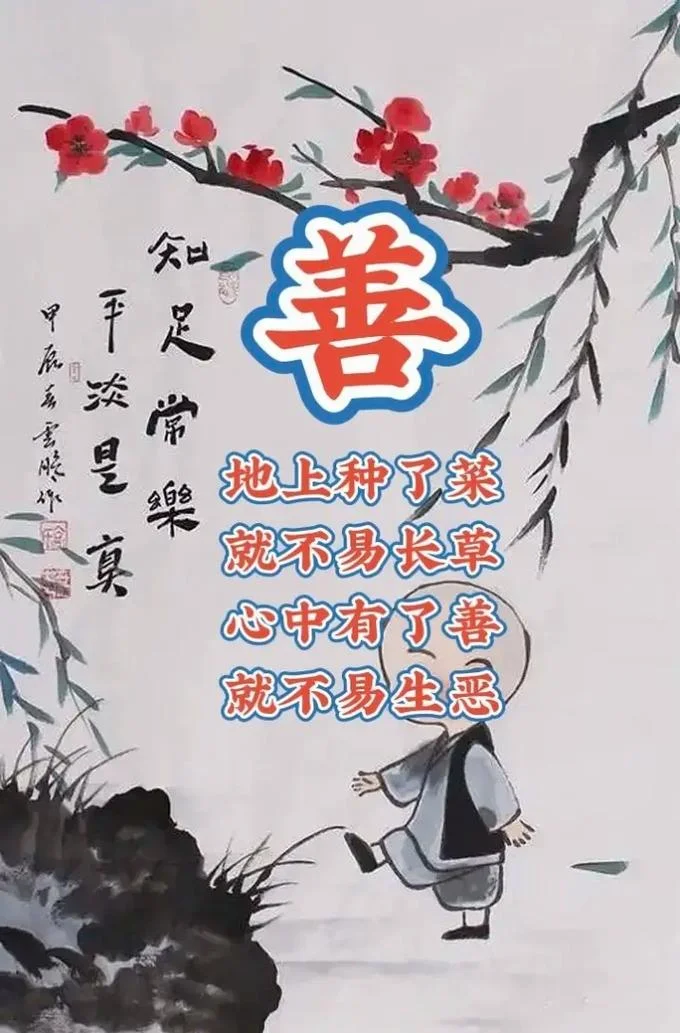 善
地上种了菜
就不易长草
心中有了善
就不易生恶
知足常樂
平淡是真
甲辰春雲晓作